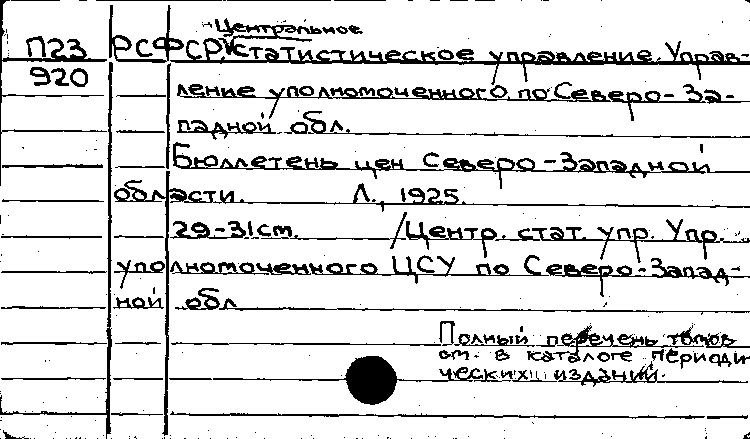 Центральное
П23 РСФСР. статистическое управление. Управ-
920
ление уполномоченного по Северо-За-
падной обл.
Бюллетень цен Северо-Западной
области. Л., 1925.
29-31см. /Центр. стат. упр. Упр.
уполномоченного ЦСУ по Северо-Запад-
ной обл
Полный перечень томов
см. в каталоге периоди
ческих изданий.